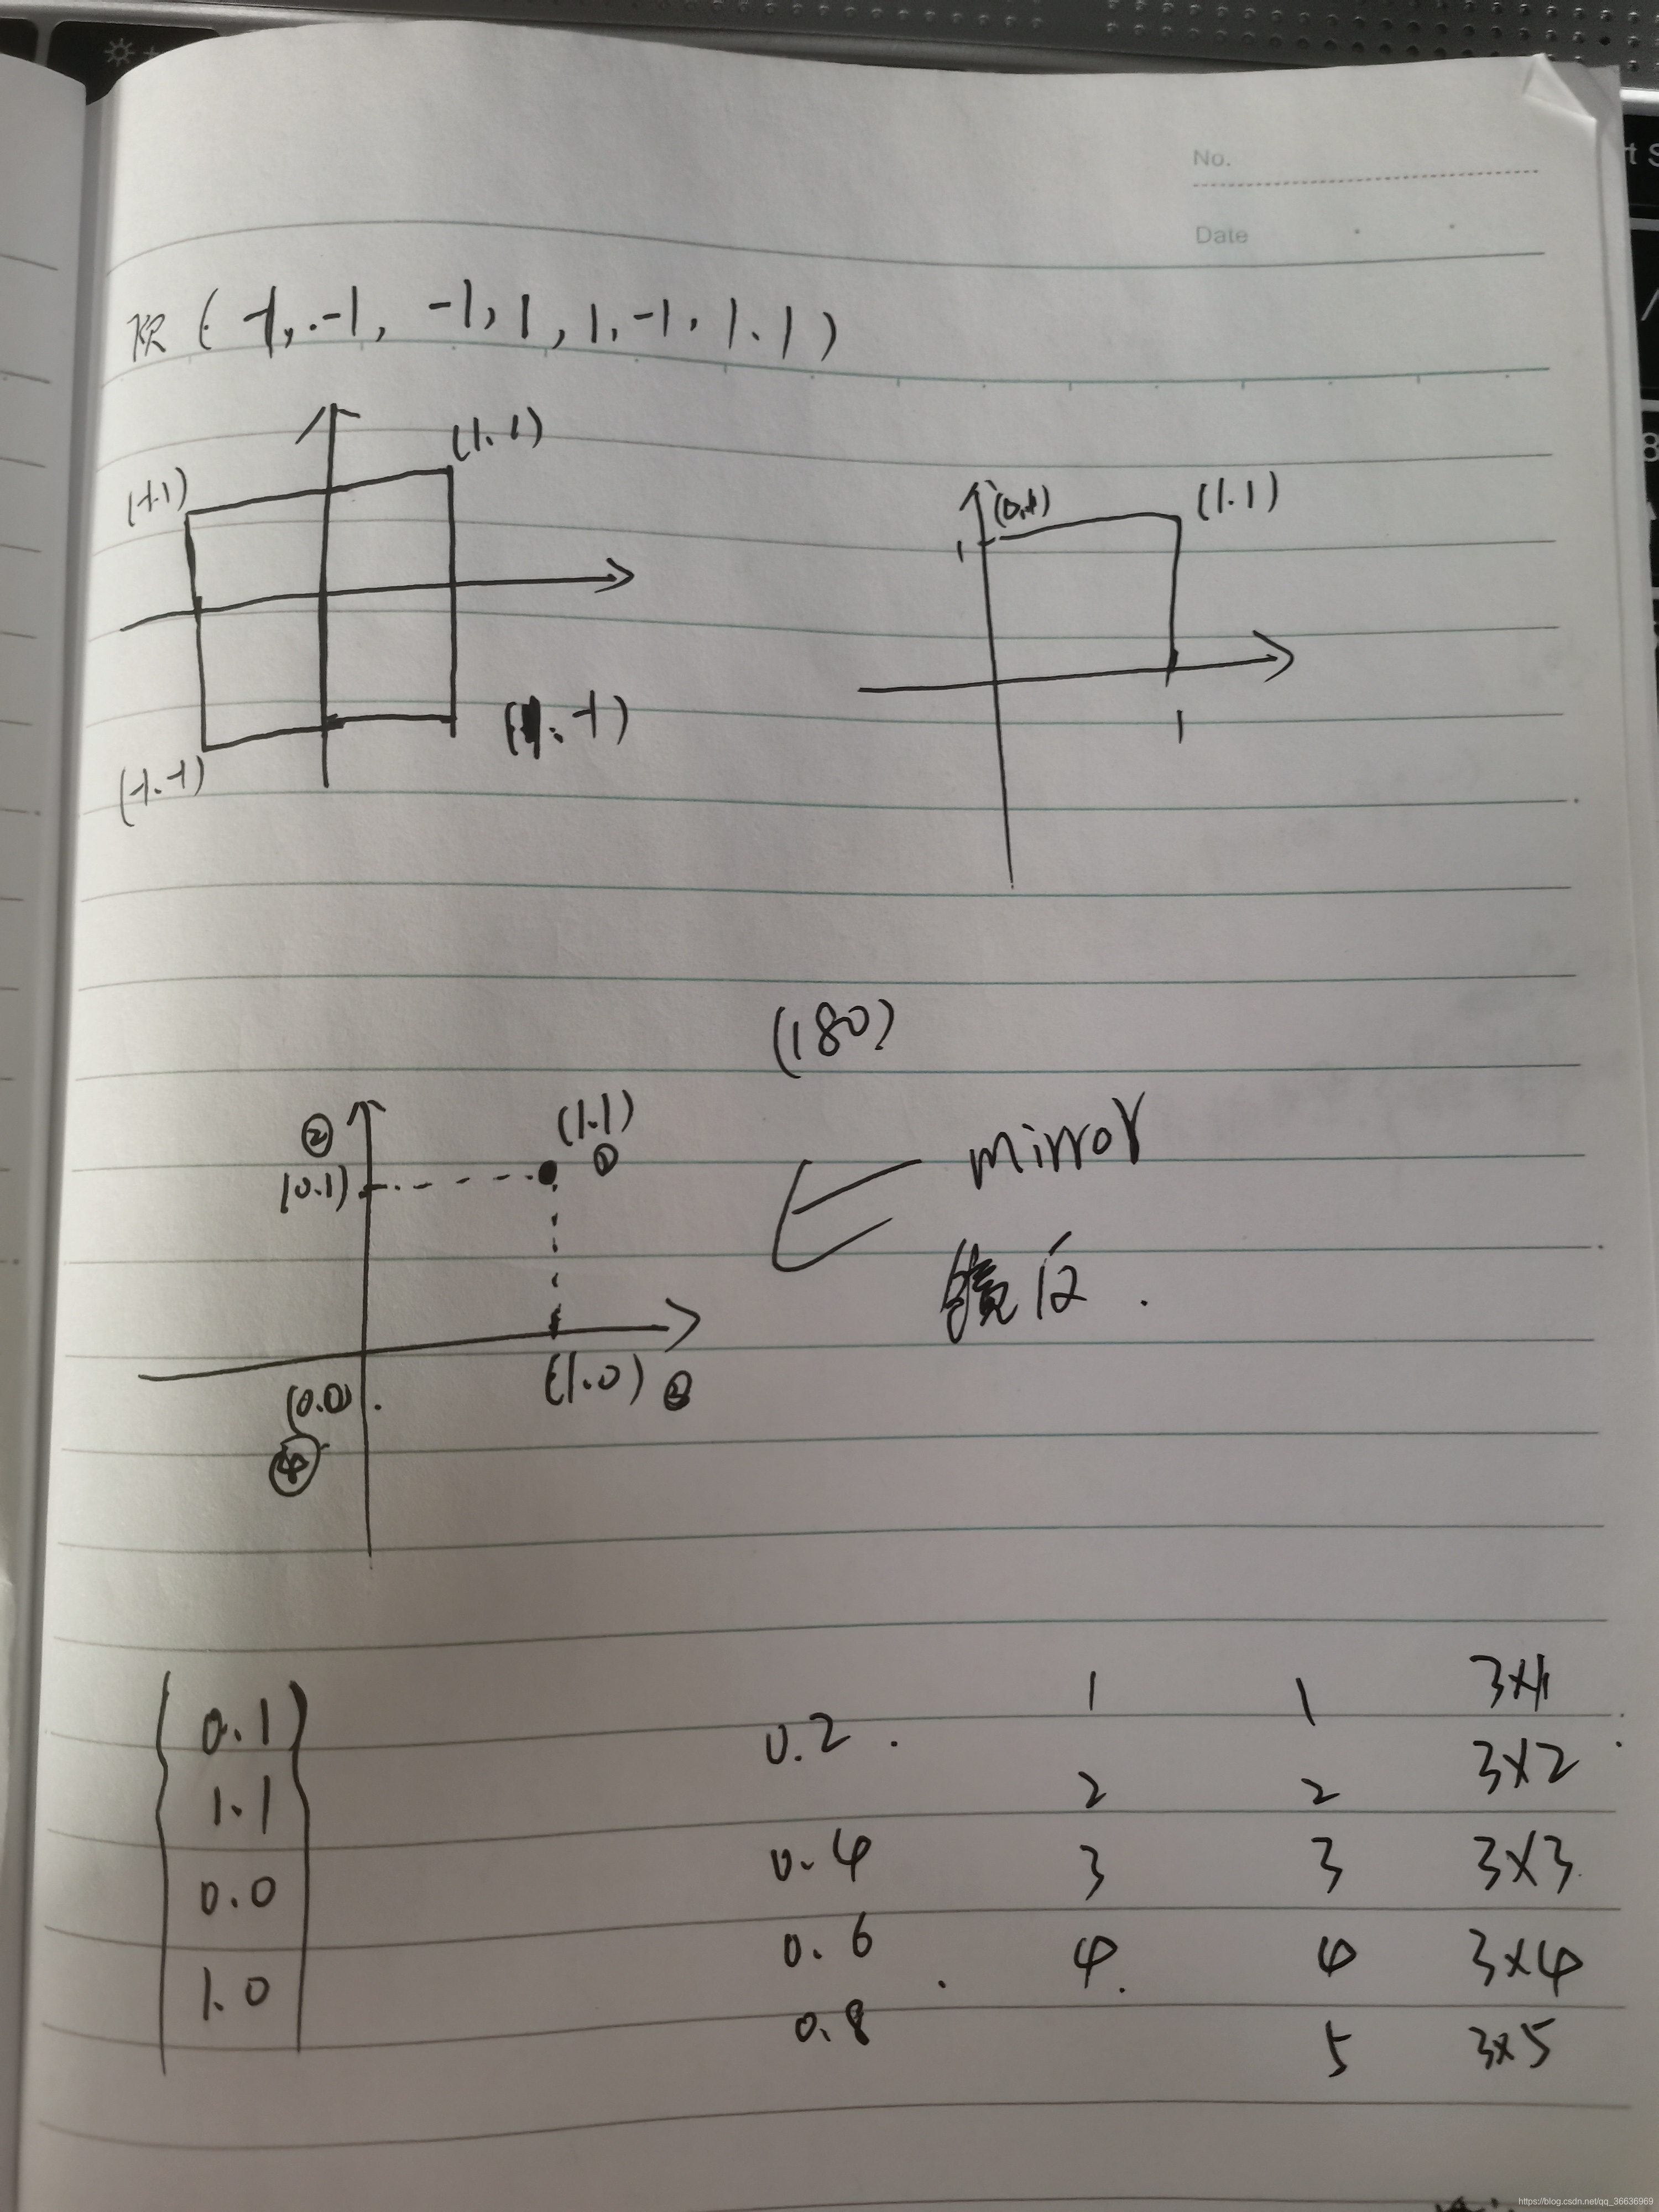 No.
Date
( -1, -1, -1, 1, 1, -1, 1.1 )
(1.1)
(-1.1)
(1.-1)
(-1.-1)
(0.1)
(1.1)
1
1
(180)
②
(1.1)
①
(0.1)
mirror
镜
(1.0)
(0.0)
④
0.1
1.1
0.0
1.0
0.2
0.4
0.6
0.8
1
2
3
4
1
2
3
4
5
3×1
3×2
3×3
3×4
3×5
https://blog.csdn.net/qq_36636969